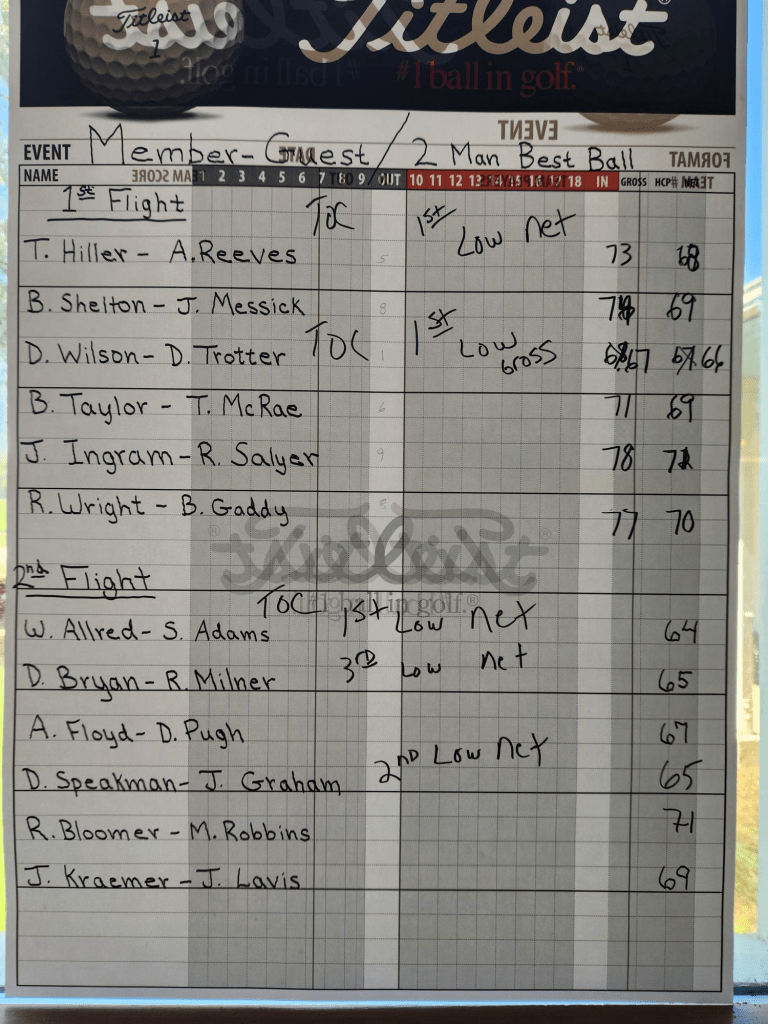 Titleist
1
Titleist
#1 ball in golf.
EVENT Member-Guest / 2 Man Best Ball
NAME 2 3 4 5 6 7 8 9 OUT 10 11 12 13 14 15 16 17 18 IN GROSS HCP
1st Flight
T. Hiller - A. Reeves TOC 1st Low net 73 68
B. Shelton - J. Messick 69
D. Wilson - D. Trotter TOC 1st Low Gross 67 66
B. Taylor - T. McRae 71 69
J. Ingram - R. Salyer 78
R. Wright - B. Gaddy 77 70
2nd Flight
W. Allred - S. Adams TOC 1st Low net 64
D. Bryan - R. Milner 3RD Low net 65
A. Floyd - D. Pugh 67
D. Speakman - J. Graham 2ND Low net 65
R. Bloomer - M. Robbins 71
J. Kraemer - J. Lavis 69